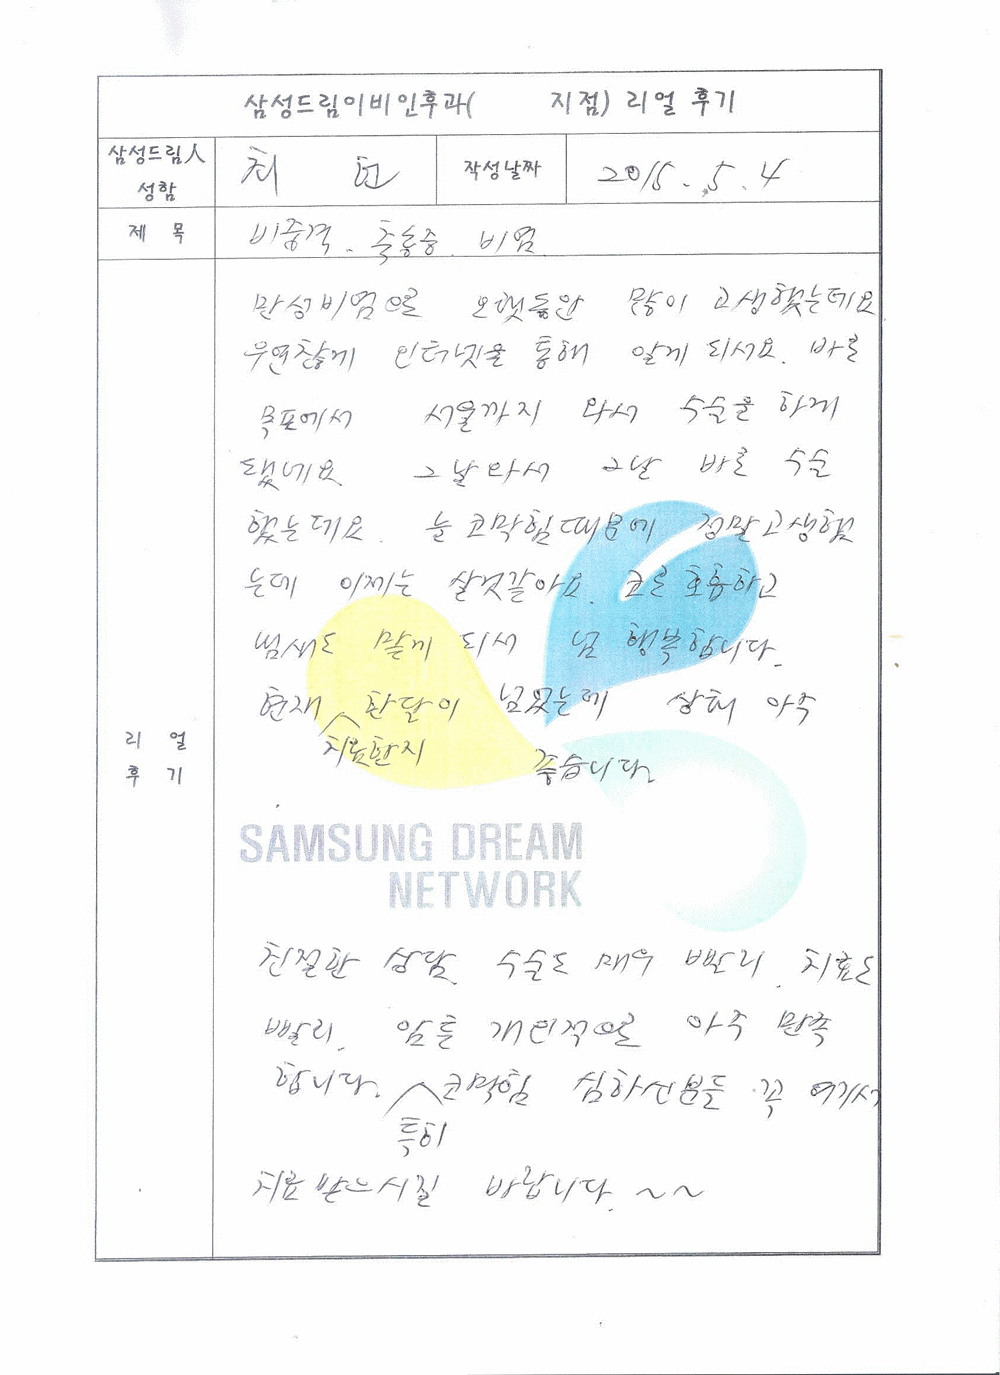 삼성드림이비인후과( 지점) 리얼 후기
삼성드림人 성함 최 현 작성날짜 2015.5.4
제 목 비중격. 축농증. 비염
만성비염으로 오랫동안 많이 고생했는데요
우연찮게 인터넷을 통해 알게 되서요. 바로
목포에서 서울까지 와서 수술을 하게
됐네요 그날와서 그날 바로 수술
했는데요. 늘 코막힘때문에 정말고생했
는데 이제는 살것같아요. 코로 호흡하고
냄새도 맡게 되서 넘 행복합니다.
현재 치료한지 한달이 넘었는데 상태 아주
좋습니다.
리 얼
후 기
SAMSUNG DREAM
NETWORK
친절한 상담. 수술도 매우 빨리. 치료도
빨리. 암튼 개인적으로 아주 만족
합니다. 특히 코막힘 심하신분들 꼭 여기서
치료받으시길 바랍니다. ~~